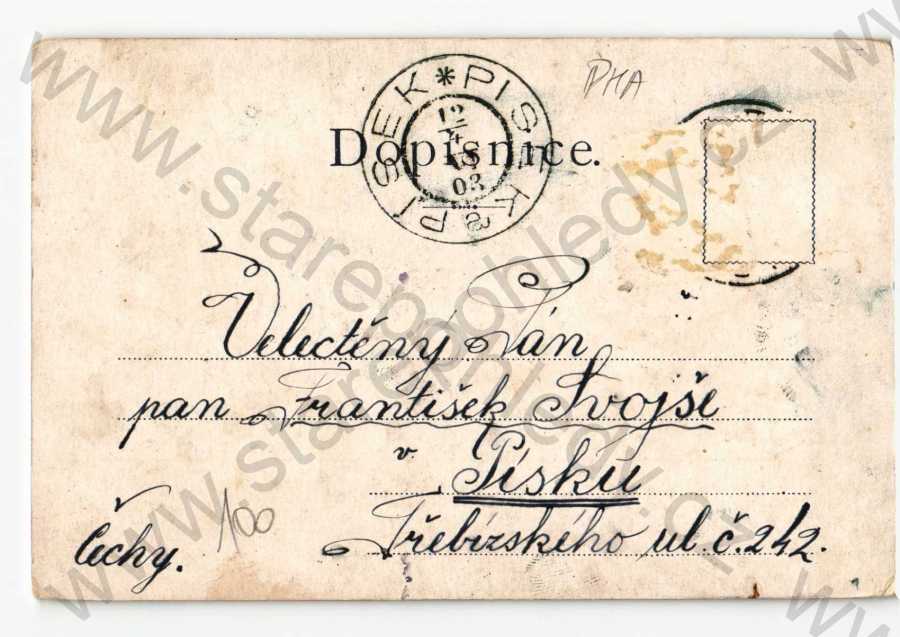 PHA
PISEK * PISEK
12
4
03
Dopisnice.
Velectěný Pán
pan František Svojše
v Písku
Třebízského ul. č. 242.
Čechy.
100
www.starepohledy.cz